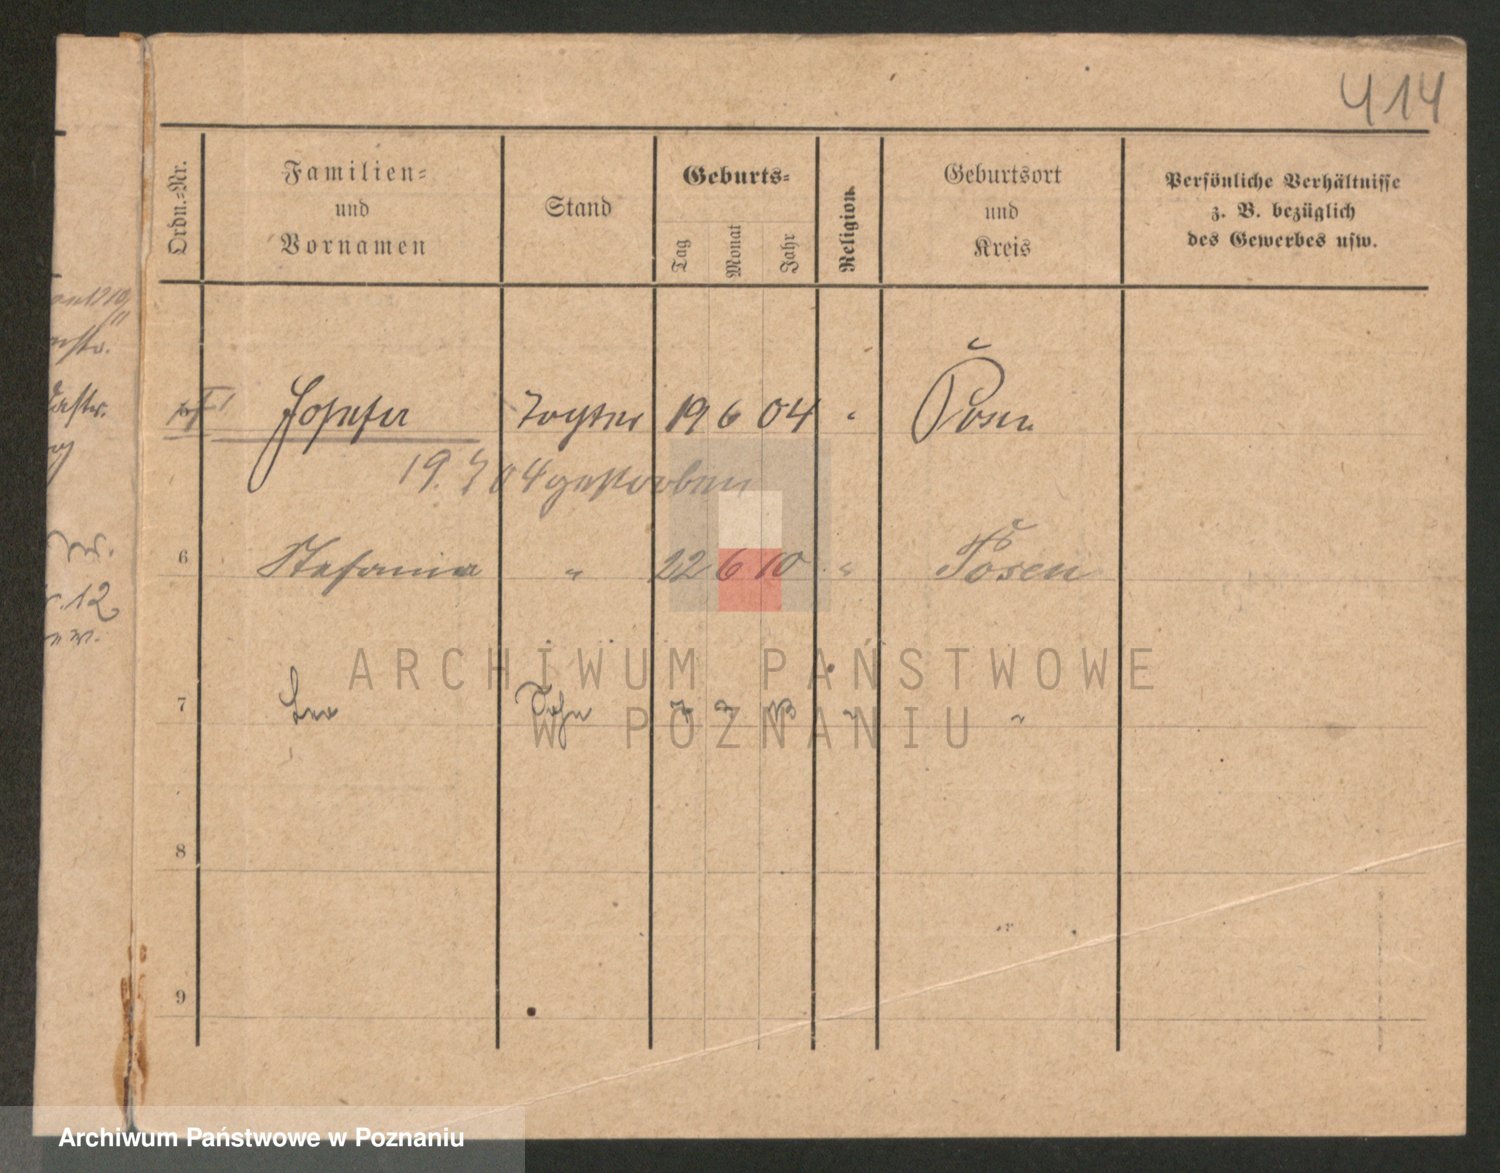 414
Ordn.-Nr.
Familien-
und
Vornamen
Stand
Geburts-
Tag
Monat
Jahr
Religion.
Geburtsort
und
Kreis
Persönliche Verhältnisse
z. B. bezüglich
des Gewerbes usw.
Josefa Tochter 19 6 04 " Posen
19. 7 04 gestorben
6 Stefania " 22 6 10 " Posen
7 Leo Sohn "
8
9
12
ARCHIWUM PAŃSTWOWE
W POZNANIU
Archiwum Państwowe w Poznaniu